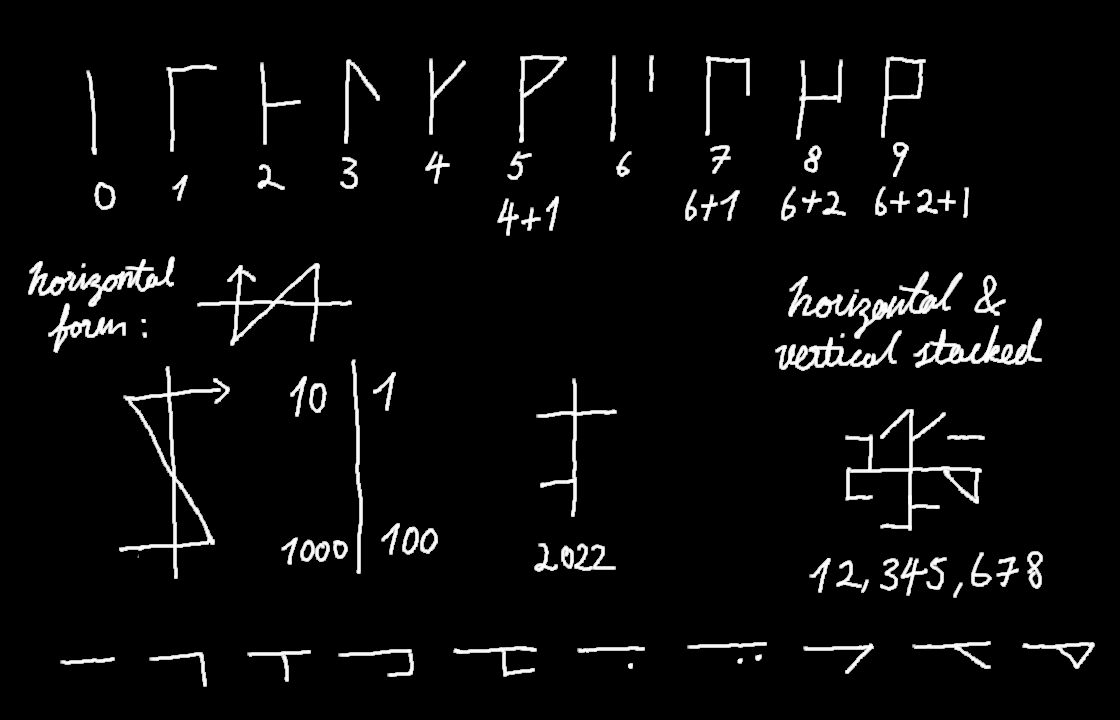 0 1 2 3 4 5 6 7 8 9
4+1 6+1 6+2 6+2+1
horizontal
form:
horizontal &
vertical stacked
10 1
1000 100
2022
12,345,678